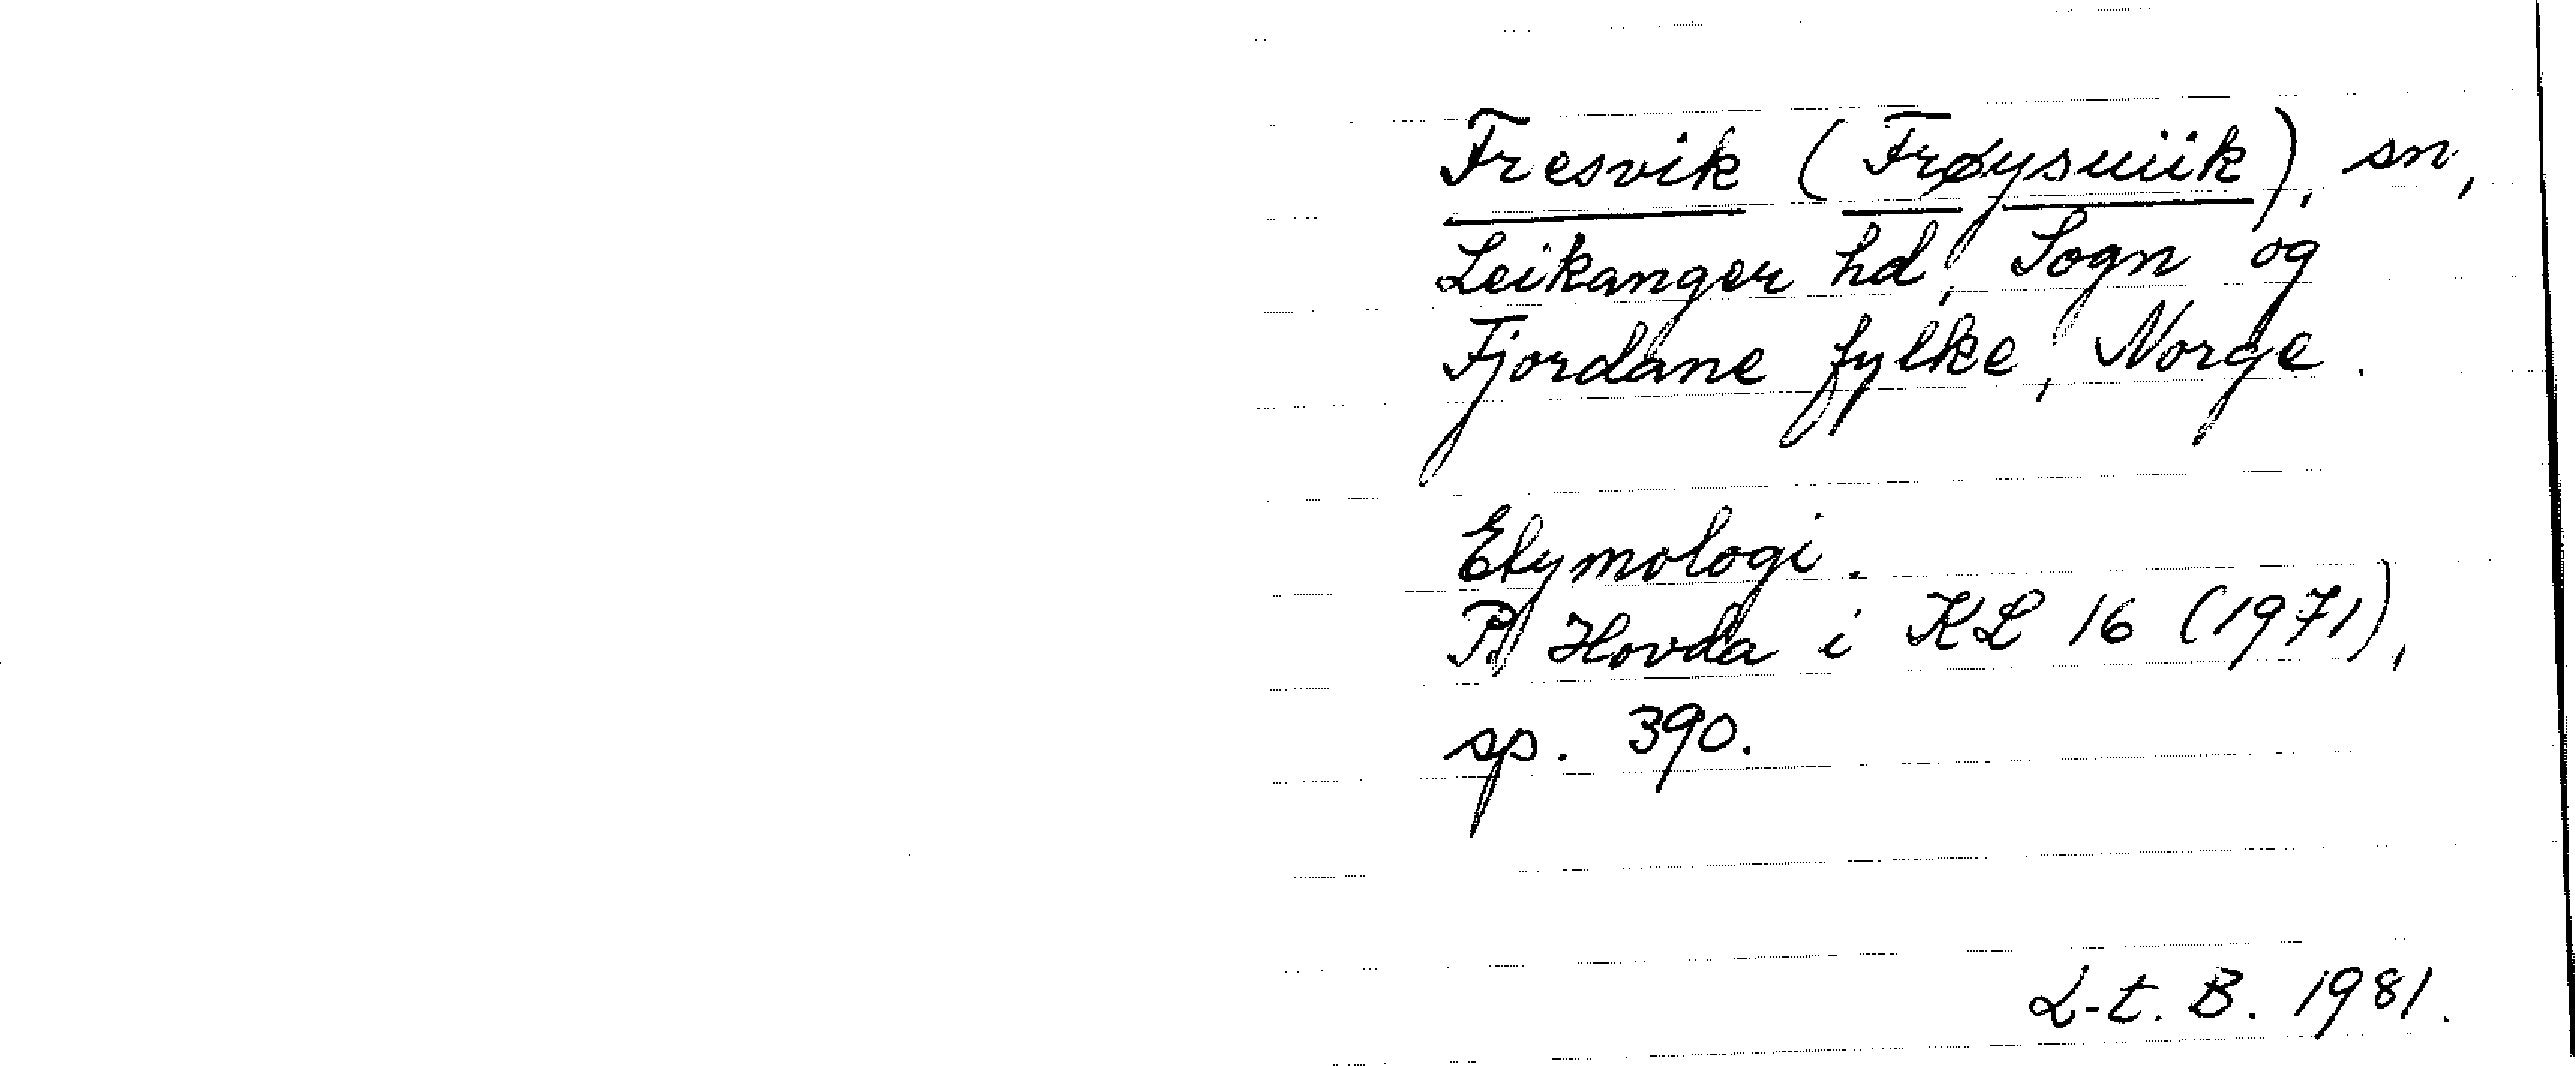 Fresvik (Frøysuiik), sn,
Leikanger hd, Sogn og
Fjordane fylke, Norge.
Etymologi.
P Hovda i KL 16 (1971),
sp. 390.
L-t. B. 1981.